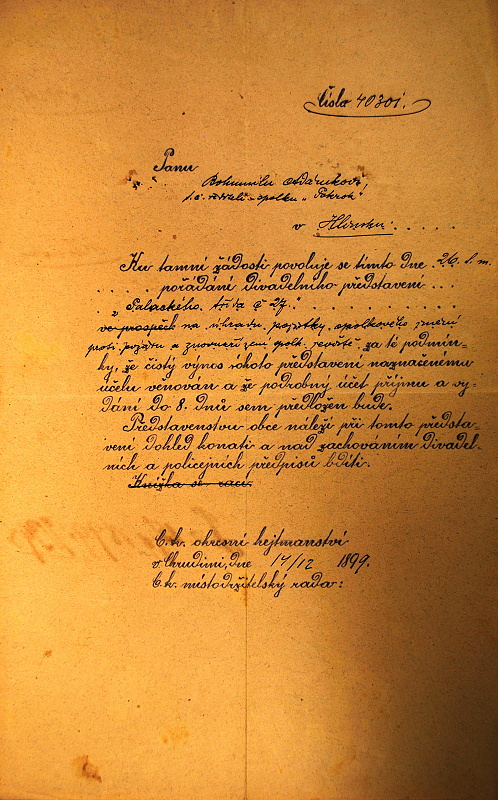 Číslo 40301.
Panu
Bohumilu
t. č. řediteli spolku „Pokrok“
v Hlinsku: . . . . .
Ku tamní žádosti povoluje se tímto dne 26. t. m.
. . pořádání divadelního představení . . .
„Palackého třída č 27“ . . . . . . . .
ve prospěch na úhradu pojistky spolkového jmění
proti požáru a znovuzřízení spolk. jeviště za té podmín-
ky, že čistý výnos tohoto představení naznačenému
účelu věnován a že podrobný účet příjmu a vy-
dání do 8. dnů sem předložen bude.
Představenstvu obce náleží při tomto předsta-
vení dohled konati a nad zachováním divadel-
ních a policejních předpisů bdíti.
Knížka se vrací.
C. k. okresní hejtmanství
v Chrudimi, dne 14/12 1899.
C. k. místodržitelský rada: